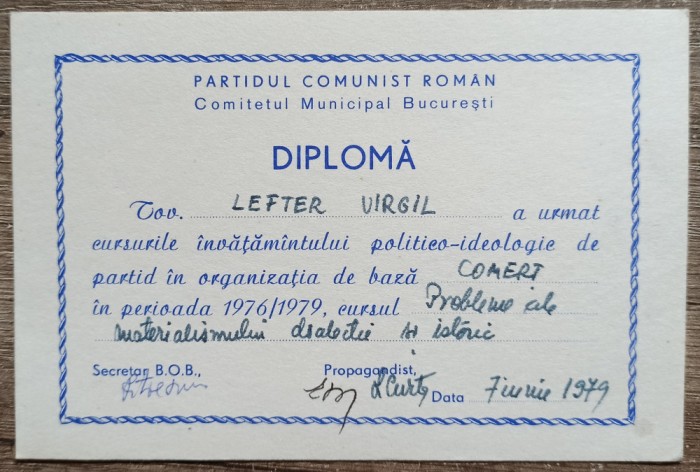 PARTIDUL COMUNIST ROMÂN
Comitetul Municipal București
DIPLOMĂ
Tov. LEFTER VIRGIL a urmat
cursurile învățămîntului politico-ideologic de
partid în organizația de bază COMERȚ
în perioada 1976/1979, cursul Probleme ale
materialismului dialectic și istoric
Secretar B.O.B., Propagandist,
Data 7 iunie 1979